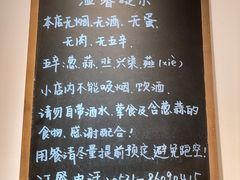 温馨提示
本店无烟、无酒、无蛋、
无肉、无五辛.
五辛:葱、蒜、韭、兴渠、薤(xiè)
小店内不能吸烟、饮酒.
请勿自带酒水、荤食及含葱蒜的
食物,感谢配合!
用餐请尽量提前预定,避免跑空!
订餐电话:0531-86090415